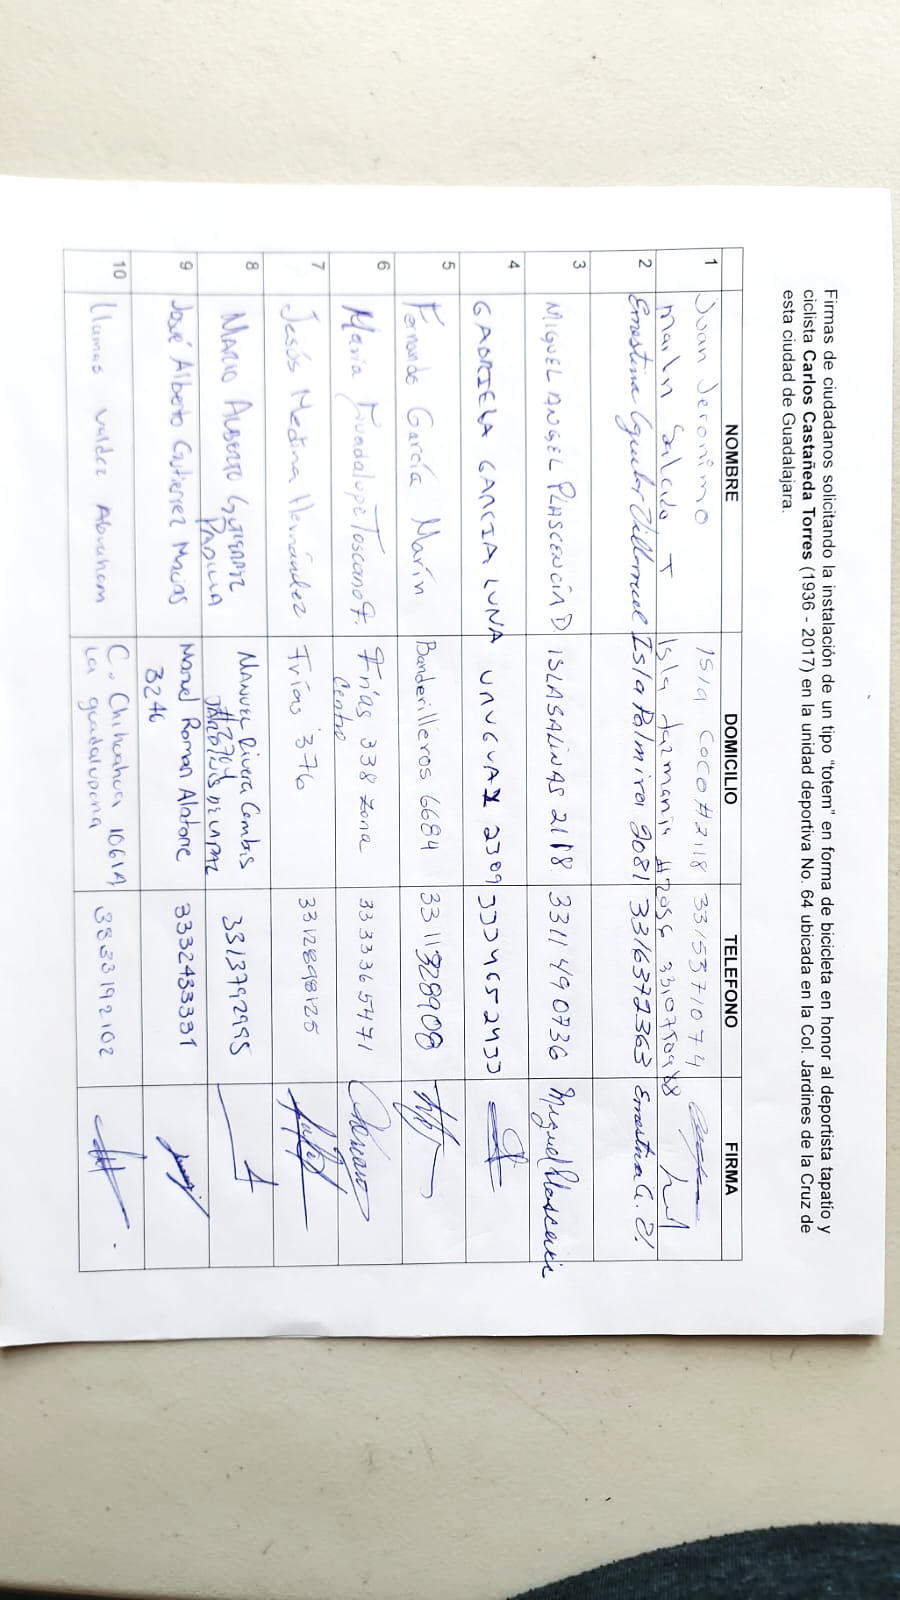 Firmas de ciudadanos solicitando la instalación de un tipo "totem" en forma de bicicleta en honor al deportista tapatío y
ciclista Carlos Castañeda Torres (1936 - 2017) en la unidad deportiva No. 64 ubicada en la Col. Jardines de la Cruz de
esta ciudad de Guadalajara.
NOMBRE DOMICILIO TELEFONO FIRMA
1 Juan Jeronimo Isla Coco #2118 3315371074
Salcedo T Isla tazmania
2 Ernestina Villarruel Isla Palmira 2081 3316372363 Ernestina
3 MIGUEL ANGEL PLASCENCIA D. ISLA SALINAS 2118 3311490736 Miguel Plascencia
4 GABRIELA GARCIA LUNA URUGUAY 2309 3334652433
5 Fernando García Marín Banderilleros 6684 3311328908
6 María Guadalupe Toscano F. Frías 338 Zona
Centro 3333365471
7 Jesús Medina Hernández Frías 376 3312898125
8 MARIO ALBERTO GUTIERREZ
PADILLA MANUEL Rivera Cambas
#2704
3313792995
9 José Alberto Gutierrez Macias Manuel Roman Alatorre
3246 3332433331
10 Llamas Valdez Abraham C. Chihuahua 1061A
La guadalupana 3333192102